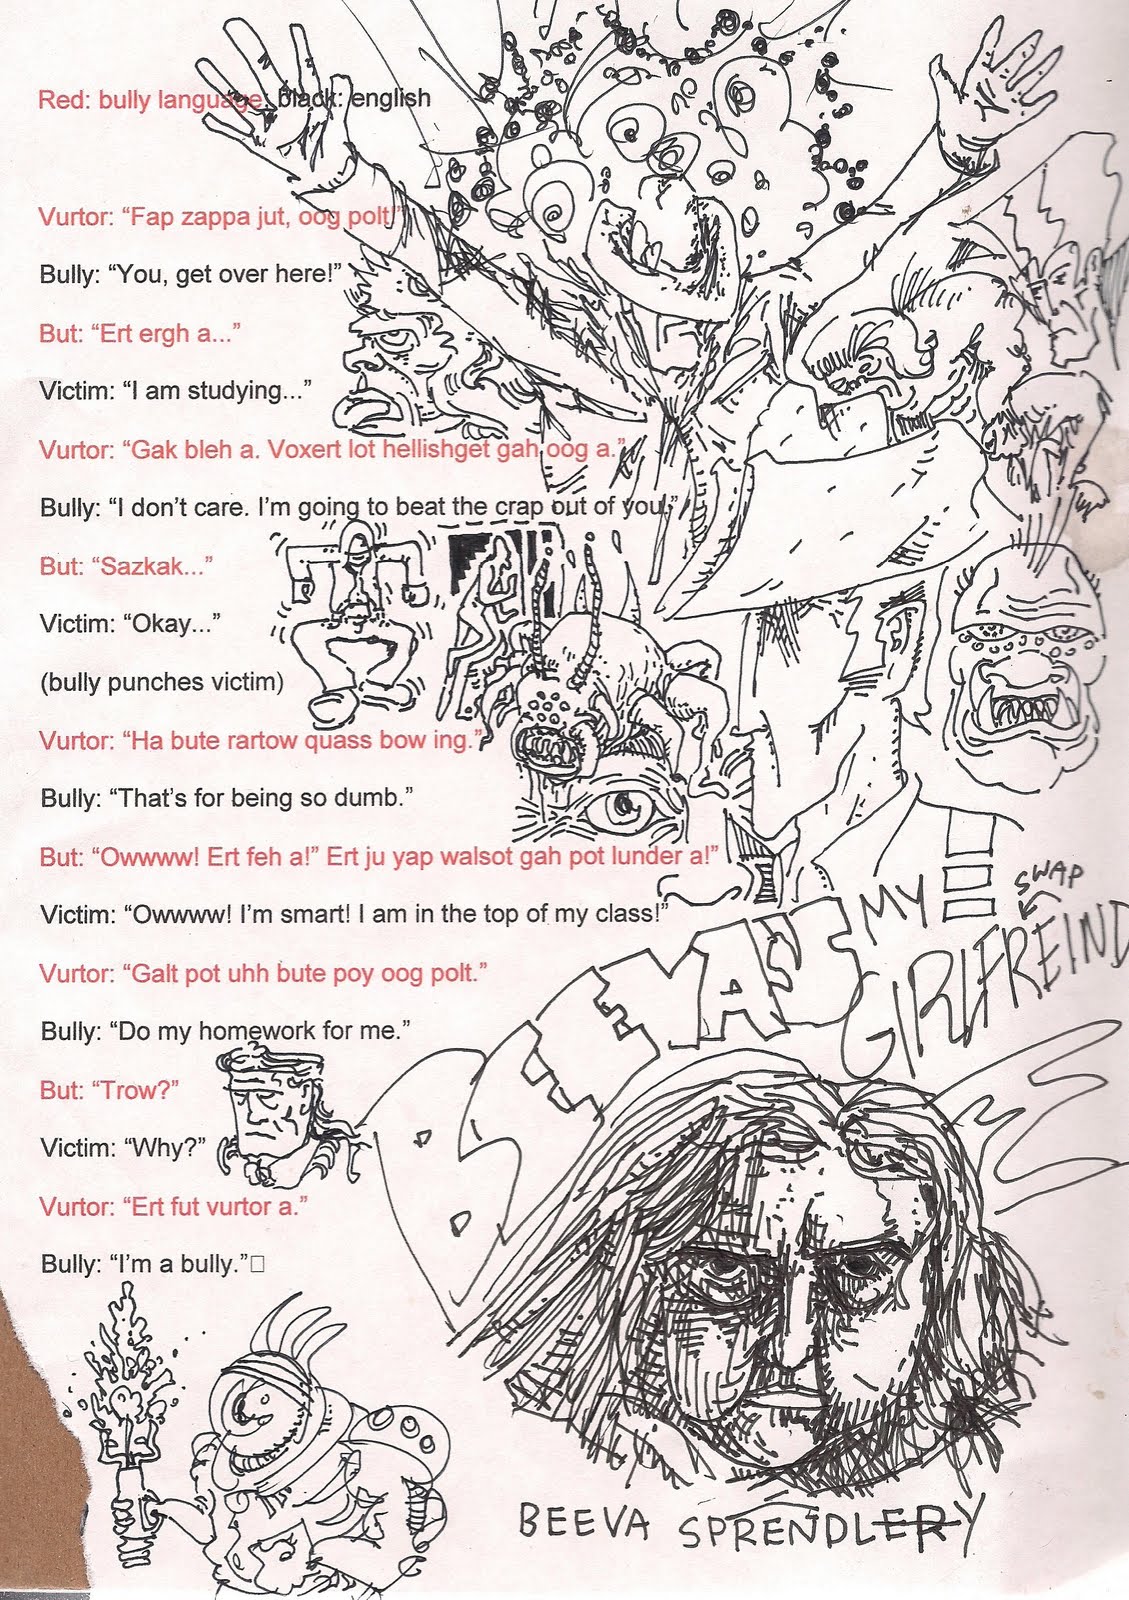 Red: bully language; black: english
Vurtor: “Fap zappa jut, oog polt!”
Bully: “You, get over here!”
But: “Ert ergh a...”
Victim: “I am studying...”
Vurtor: “Gak bleh a. Voxert lot hellishget gah oog a.”
Bully: “I don’t care. I’m going to beat the crap out of you.”
But: “Sazkak...”
Victim: “Okay...”
(bully punches victim)
Vurtor: “Ha bute rartow quass bow ing.”
Bully: “That’s for being so dumb.”
But: “Owwww! Ert feh a!” Ert ju yap walsot gah pot lunder a!”
Victim: “Owwww! I’m smart! I am in the top of my class!”
Vurtor: “Galt pot uhh bute poy oog polt.”
Bully: “Do my homework for me.”
But: “Trow?”
Victim: “Why?”
Vurtor: “Ert fut vurtor a.”
Bully: “I’m a bully.”
MY
SWAP
GIRLFREIND
BEEVA SPRENDLERY